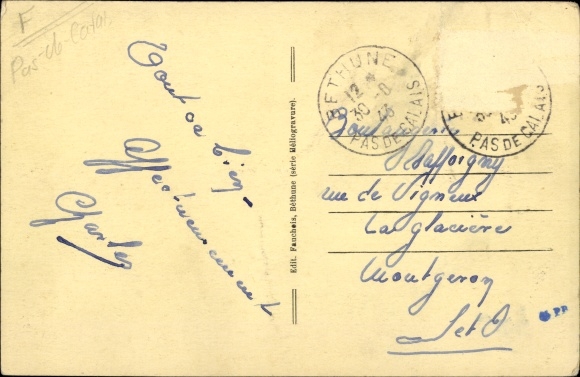 F
Pas-de-Calais
Tout va bien -
Affectueusement
Charles
Edit. Fauchois, Béthune (série Héliogravure).
BETHUNE
12 *
30 -8
43
PAS DE CALAIS
43
PAS DE CALAIS
Boulangerie
rue de Vigneux
La glacière
Montgeron
S et O
PP